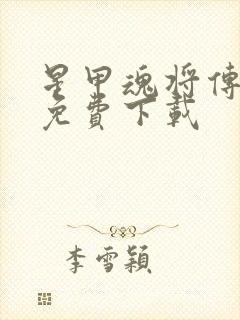 星甲魂將傳
免費下載
李雪穎